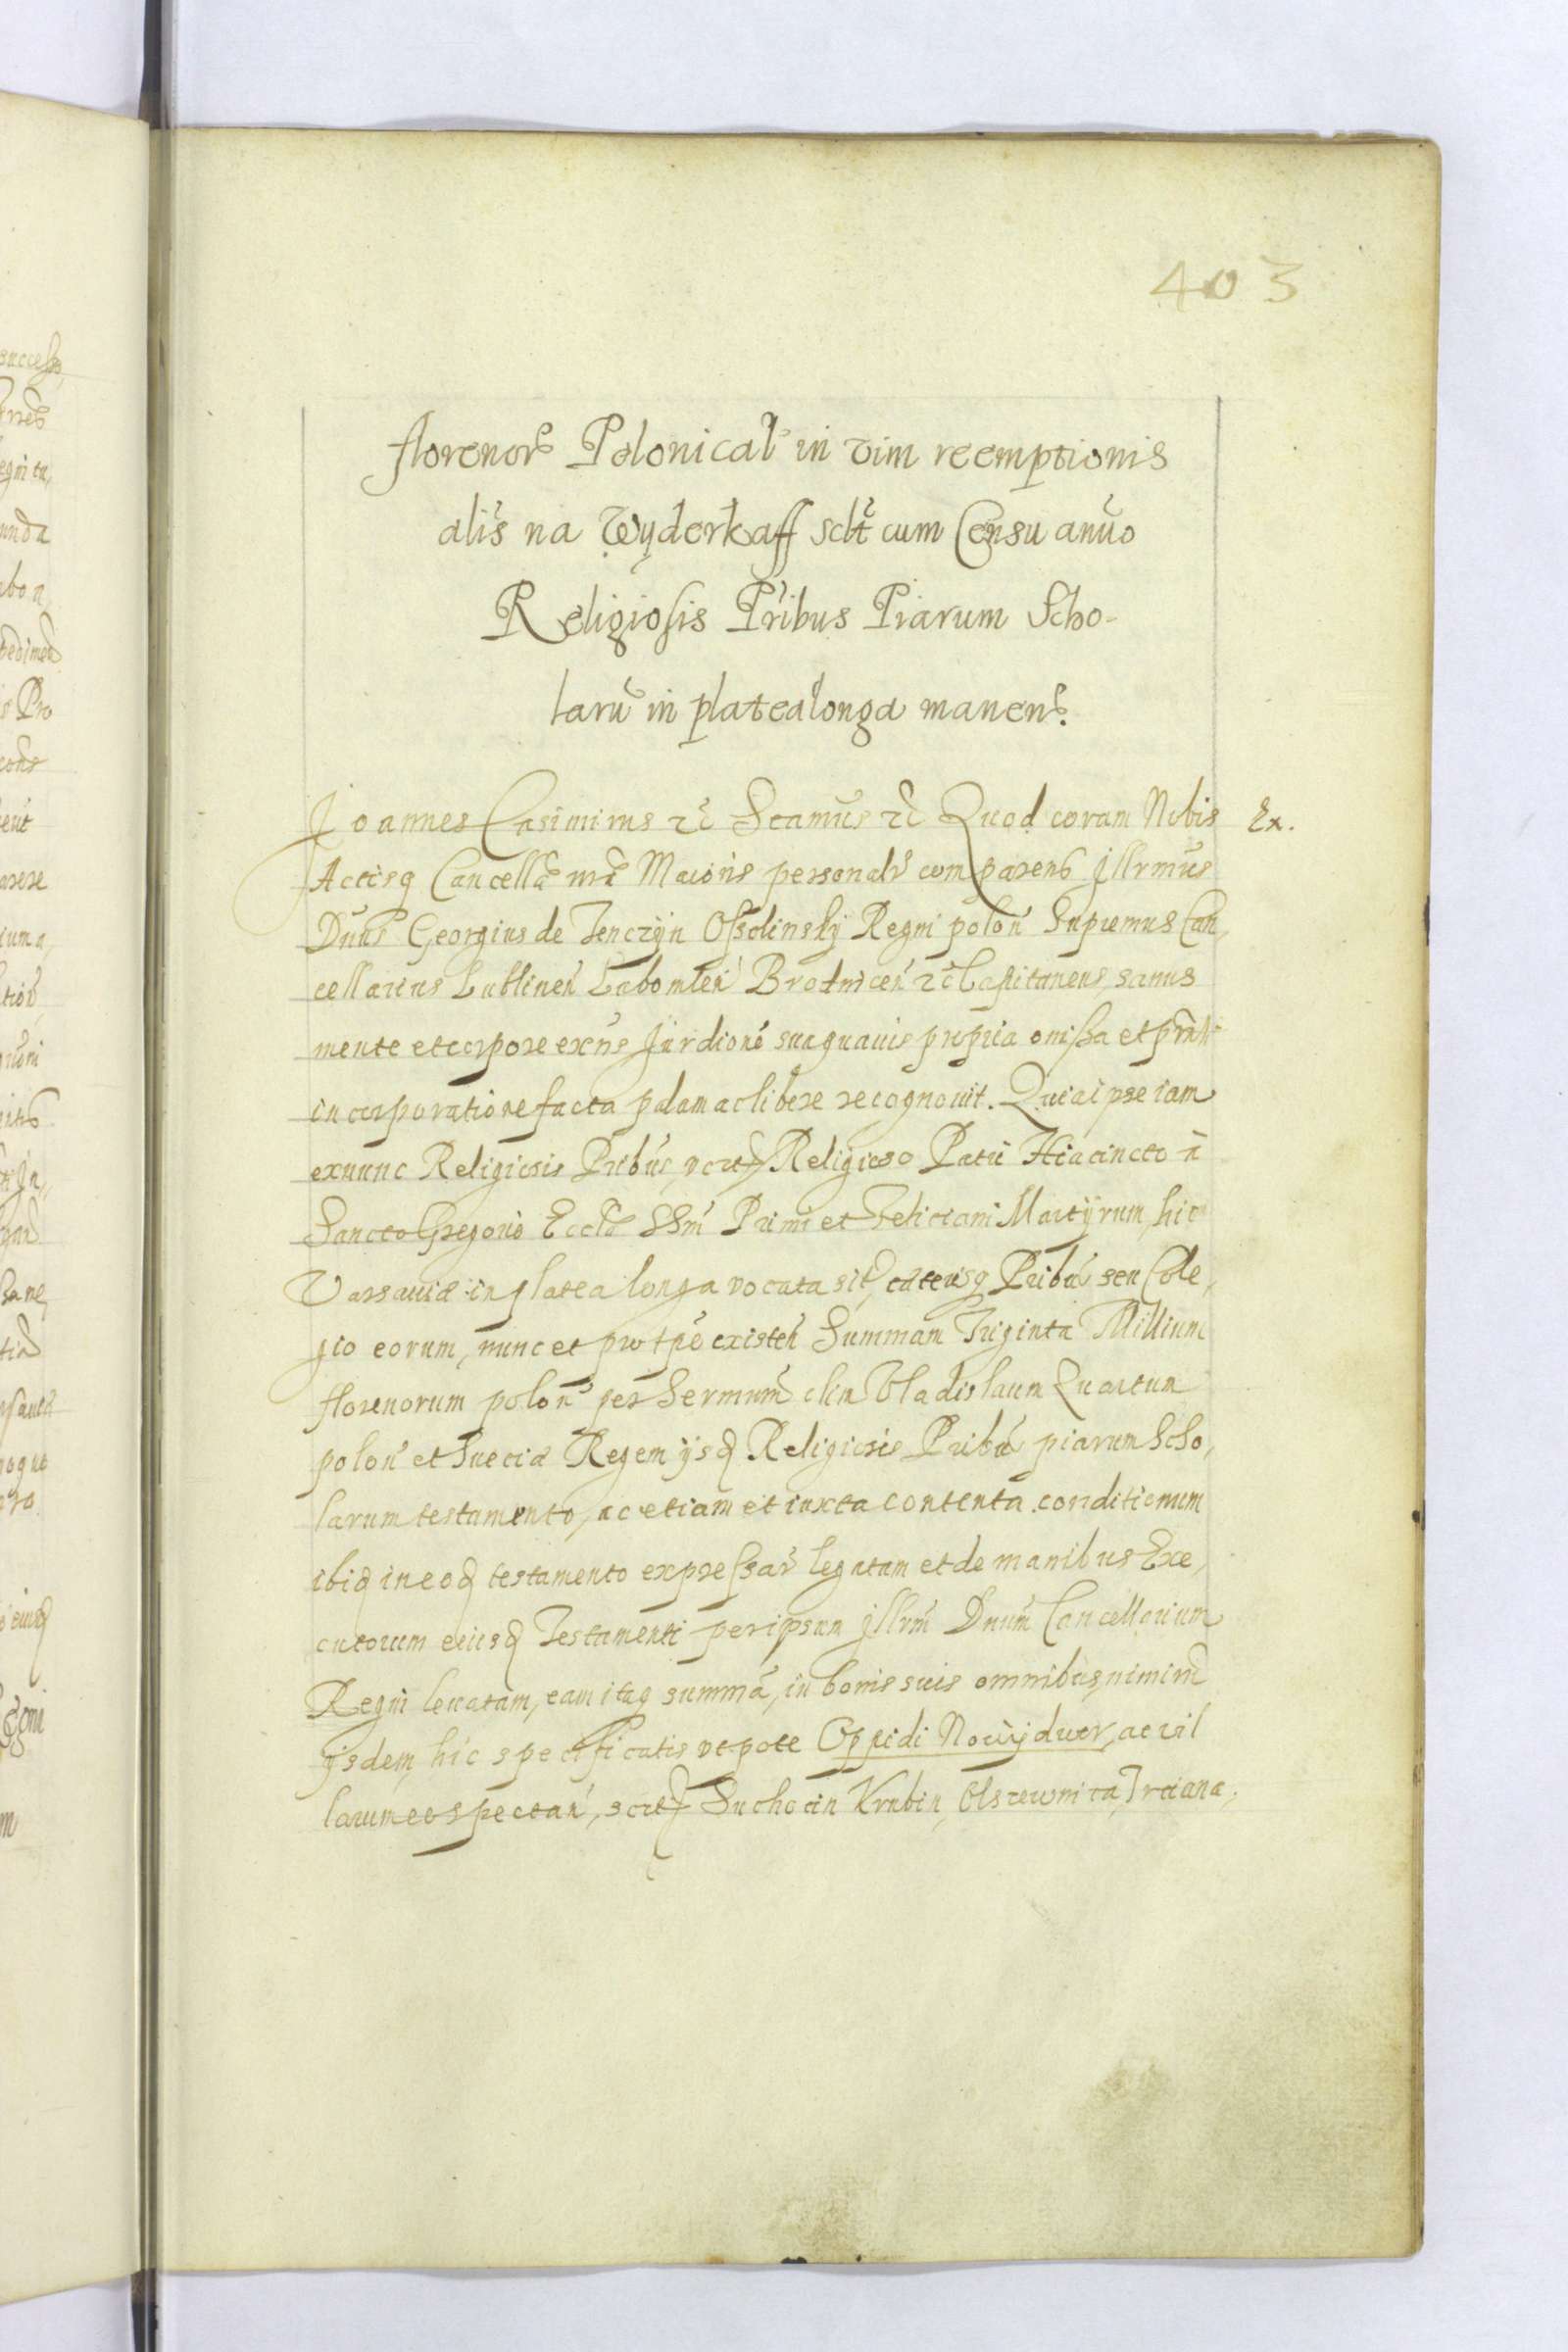 403
florenor̃ Polonical in vim reemptionis
aliс̃ na Wyderkaff sclt̃ cum Censu anũo
Religiosis Pr̃ibus Piarum Scho-
larũ in platea longa manen̄.
Joannes Casimirus etc̃ Scamus̃ etc̃ Quod coram Nobis
Ex.
Actisq Cancellã nr̃ã Maioris personalr̃ comparens Jllrmus̃
Dnus̃ Georgius de Tenczyn Ossolinsky Regni polon̄ Supremus Can,
cellarius Lublinen̄ Lubomlen̄ Brodnicen̄ etc̃ Capitaneus, sanus
mente et corpore exñs Jurdione sua quauis propria omissa et pr̃nti
incorporatione facta palam ac libere recognouit. Quia ipse iam
ex nunc Religiosis Pribus̃, Religioso Patri Hiacincto ã
Sancto Gregorio Ecclã SSm̃ Primi et Feliciani Martyrum, hic
Varsauiæ in platea longa vocata sit̃, cæterisq Pribũ seu Colle,
gio eorum, nunc et pro tpẽ existen̄ Summam Triginta Millium
florenorum polon̄ per Sermum̃ olim Vladislaum Quartum
polon̄ et Sueciæ Regem ysd Religiosis Pribũ piarum Scho,
larum testamento, ac etiam et iuxta contenta conditionum
ibiq in eod testamento expressar̃ legatam et de manibus Exe,
cutorum eiusd Testamenti per ipsum Jllrm̃ Dnum̃ Cancellarium
Regni leuatam, eam itaq summã, in bonis suis omnibus, nimir̃
ysdem hic specificatis vt pote Oppidi Nowydwor, ac vil
larum eo spectan̄, Suchocin Krubin, Olszewnica, Trciana,